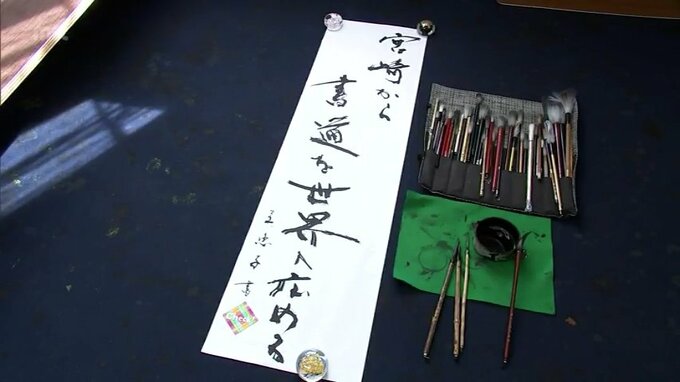 宮崎から
書道を世界へ広める